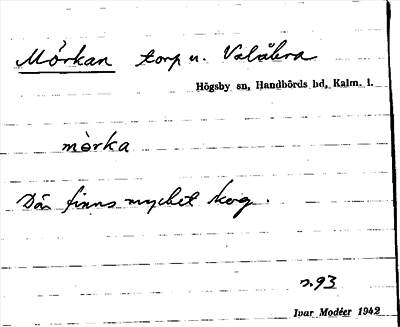 Mörkan torp u. Valåkra
Högsby sn, Handbörds hd, Kalm. l.
mòrka
Där finns mycket
s. 93
Ivar Modéer 1942